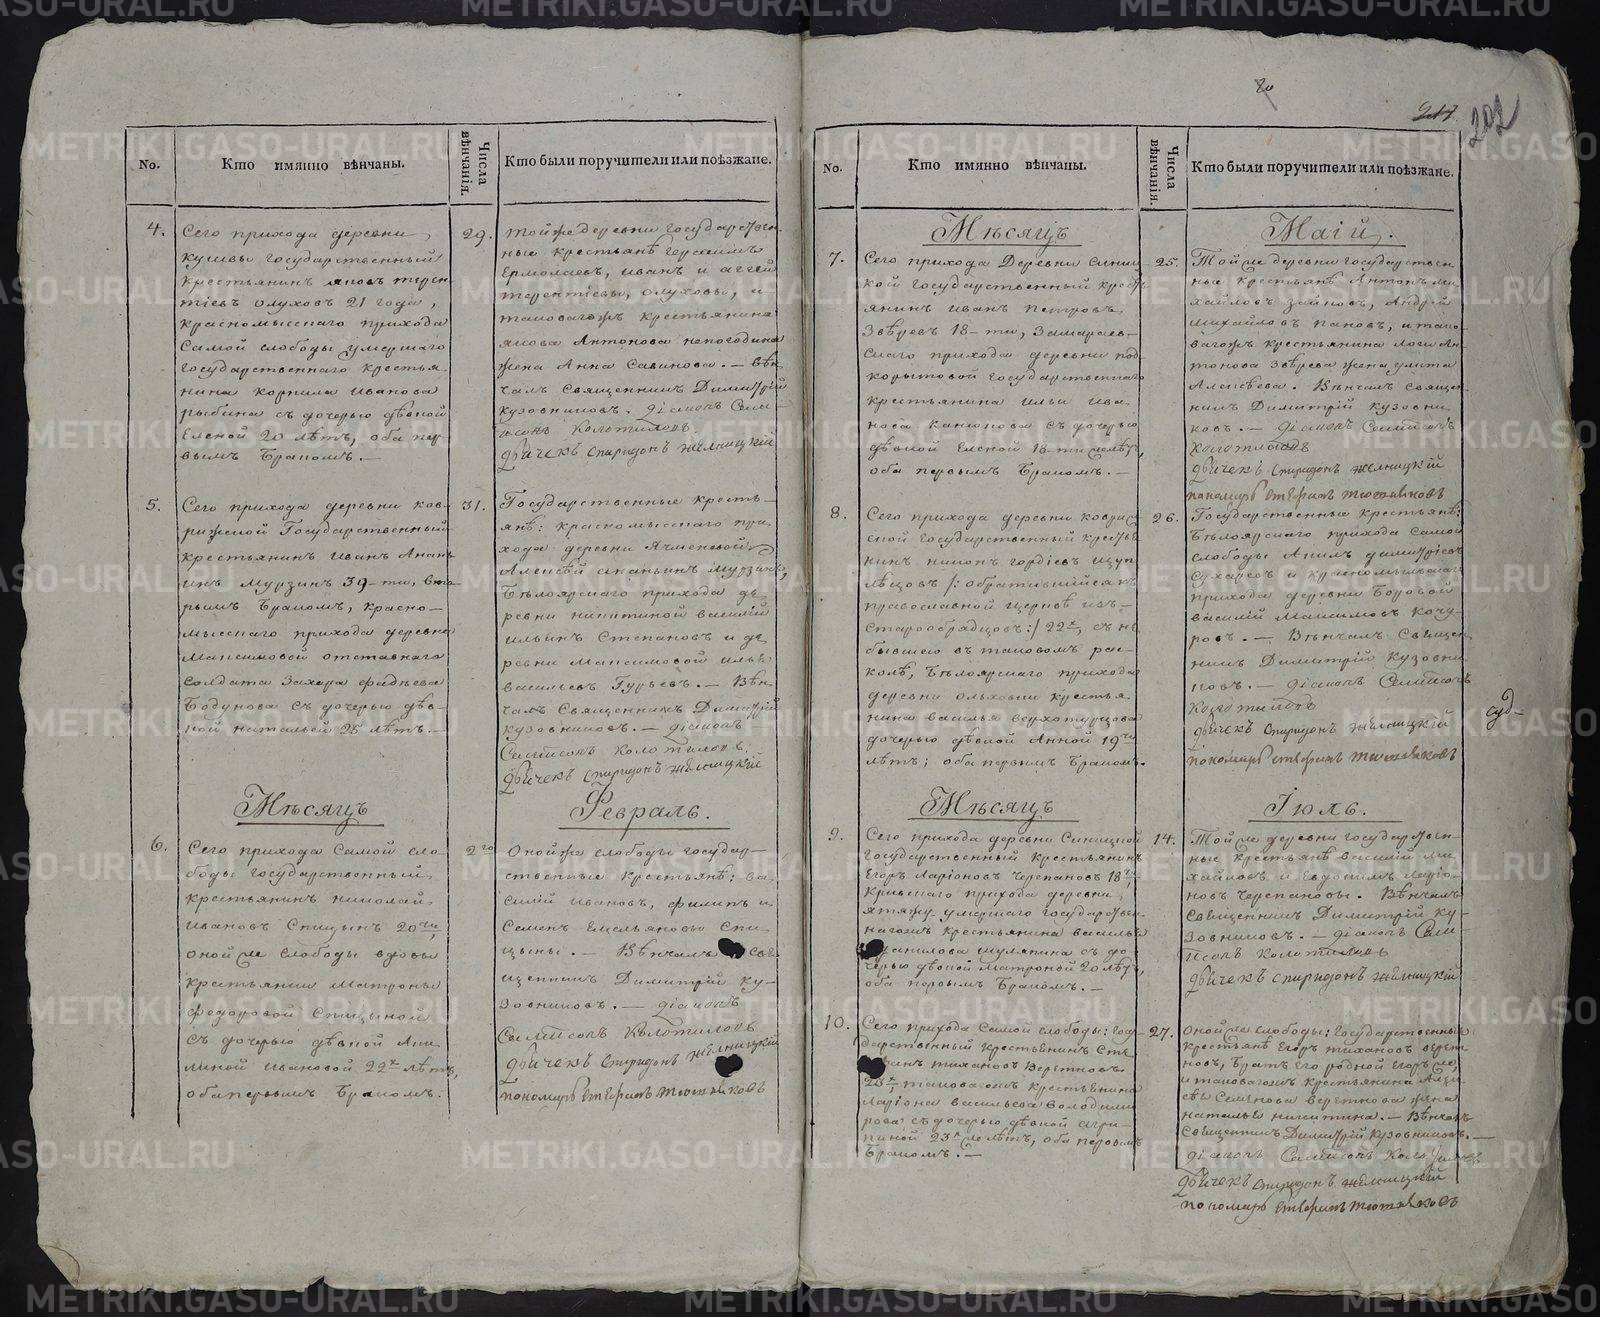 No.
Кто имянно вѣнчаны.
Числа вѣнчанія.
Кто были поручители или поѣзжане.
4.
Сего прихода деревни
кушвы государственный
крестьянинъ яковъ терен
тіевъ олуховъ 21 года,
красномысскаго прихода
самой слободы умершаго
государственнаго крестья
нина корнила иванова
рыбина съ дочерью дѣвкой
Еленой 20 лѣтъ, оба пер-
вымъ бракомъ. —
29.
той же деревни государствен
ные крестьянѣ герасимъ
Ермолаевъ, иванъ и аггей
терентіевы, олуховы, и
таковагожъ крестьянина
якова Антонова непогодина
жена Анна Савинова. — Вѣн
чалъ священникъ Димитрій
кузовниковъ. діаконъ Самп
сонъ Колотиловъ.
дьячекъ спиридонъ желницкій
5.
Сего прихода деревни ков
рижской Государственный
крестьянинъ иванъ Анань
инъ мурзинъ 39-ти, вто
рымъ бракомъ, красно-
мысскаго прихода деревни
Максимовой отставнаго
солдата Захара фадѣева
Бодунова съ дочерью дѣв-
кой натальей 25 лѣтъ. —
31.
Государственные кресть-
янѣ: красномысскаго при
хода деревни Ячменевой
Алексѣй ананьинъ мурзинъ,
Бѣлоярскаго прихода де
ревни никитиной василій
ильинъ Степановъ и де
ревни Максимовой илья
васильевъ Гурьевъ. — Вѣн
чалъ священникъ Димитрій
кузовниковъ. — діаконъ
Сампсонъ Колотиловъ.
дьячекъ спиридонъ желницкій
Мѣсяцъ
Февраль.
6.
Сего прихода Самой сло
боды государственный
крестьянинъ николай
ивановъ Спицынъ 20ти,
оной же слободы вдовы
крестьянки матроны
федоровой Спицыной
съ дочерью дѣвкой Аку
линой ивановой 22х лѣтъ,
оба первымъ бракомъ.
2го
Оной же слободы государ-
ственные крестьянѣ: ва
силій ивановъ, филипъ и
Семенъ Емельяновы Спи
цыны. — Вѣнчалъ свя
щенникъ Димитрій ку-
зовниковъ. — діаконъ
Сампсонъ Колотиловъ
дьячекъ спиридонъ желницкій
пономарь тютняковъ
No.
Кто имянно вѣнчаны.
Числа вѣнчанія.
Кто были поручители или поѣзжане.
217
202
Мѣсяцъ
Маій.
7.
Сего прихода Деревни синиц
кой государственный кресть
янинъ иванъ петровъ
Звѣревъ 18-ти, Замараев-
скаго прихода деревни под
корытовой государственнаго
крестьянина ильи ива
нова съ дочерью
дѣвкой Еленой 18-ти лѣтъ,
оба первымъ бракомъ. —
25.
Той же деревни государствен
ные крестьянѣ Антонъ ми
хайловъ заиковъ, Андрей
михайловъ пановъ, и тако
вагожъ крестьянина
тонова Звѣрева жена улита
Алексѣева. Вѣнчалъ священ
никъ Димитрій кузовни
ковъ. — діаконъ Сампсонъ
Колотиловъ
дьячекъ спиридонъ желницкій
пономарь тютняковъ
8.
Сего прихода деревни
ской государственный крестья
нинъ никонъ гордѣевъ щуп
лѣцовъ /: обратившійся къ
православной церквѣ изъ-
старообрядцовъ :/ 22х, съ не
бывшею въ таковомъ рас-
колѣ, Бѣлоярскаго прихода
деревни ольховки крестья
нина василья верхотурцова
дочерью дѣвкой Анной 19ти
лѣтъ; оба первымъ бракомъ.
26.
Государственные крестьянѣ:
Бѣлоярскаго прихода Самой
слободы дмитріевъ
Сухаревъ и красномысскаго
прихода деревни боровой
василій максимовъ кочу
ровъ. — Вѣнчалъ священ
никъ Димитрій кузовни
ковъ. — діаконъ Сампсонъ
Колотиловъ
дьячекъ спиридонъ желницкій
пономарь тютняковъ
Мѣсяцъ
Іюль.
9.
Сего прихода деревни Синицкой
Государственный крестьянинъ
Егоръ Ларіоновъ Черепановъ 18ти,
Кривскаго прихода деревни
умершаго государствен
нагожъ крестьянина василья
съ до
черью дѣвкой матроной 20 лѣтъ,
оба первымъ бракомъ. —
14.
Той же деревни государствен-
ные крестьянѣ василій ми
хайловъ и Евдокимъ ларіо-
новъ Черепановы. Вѣнчалъ
священникъ Димитрій ку-
зовниковъ. — діаконъ Самп-
сонъ Колотиловъ
дьячекъ спиридонъ желницкій
10.
Сего прихода самой слободы: госу-
дарственный крестьянинъ Сте
панъ тихановъ веретновъ
таковагожъ крестьянина
Ларіона васильева володими
рова съ дочерью дѣвкой агри-
пиной 23х лѣтъ, оба первымъ
бракомъ. —
27.
Оной же слободы: государственные
крестьянѣ Егоръ тихановъ верет
новъ, братъ его родной Егоръ же,
и таковагожъ крестьянина Алек
сѣя Семенова веретнова жена
наталья никитина. — Вѣнчалъ
священникъ Димитрій кузовниковъ. —
діаконъ Сампсонъ Колотиловъ
дьячекъ спиридонъ желницкій
пономарь тютняковъ
METRIKI.GASO-URAL.RU